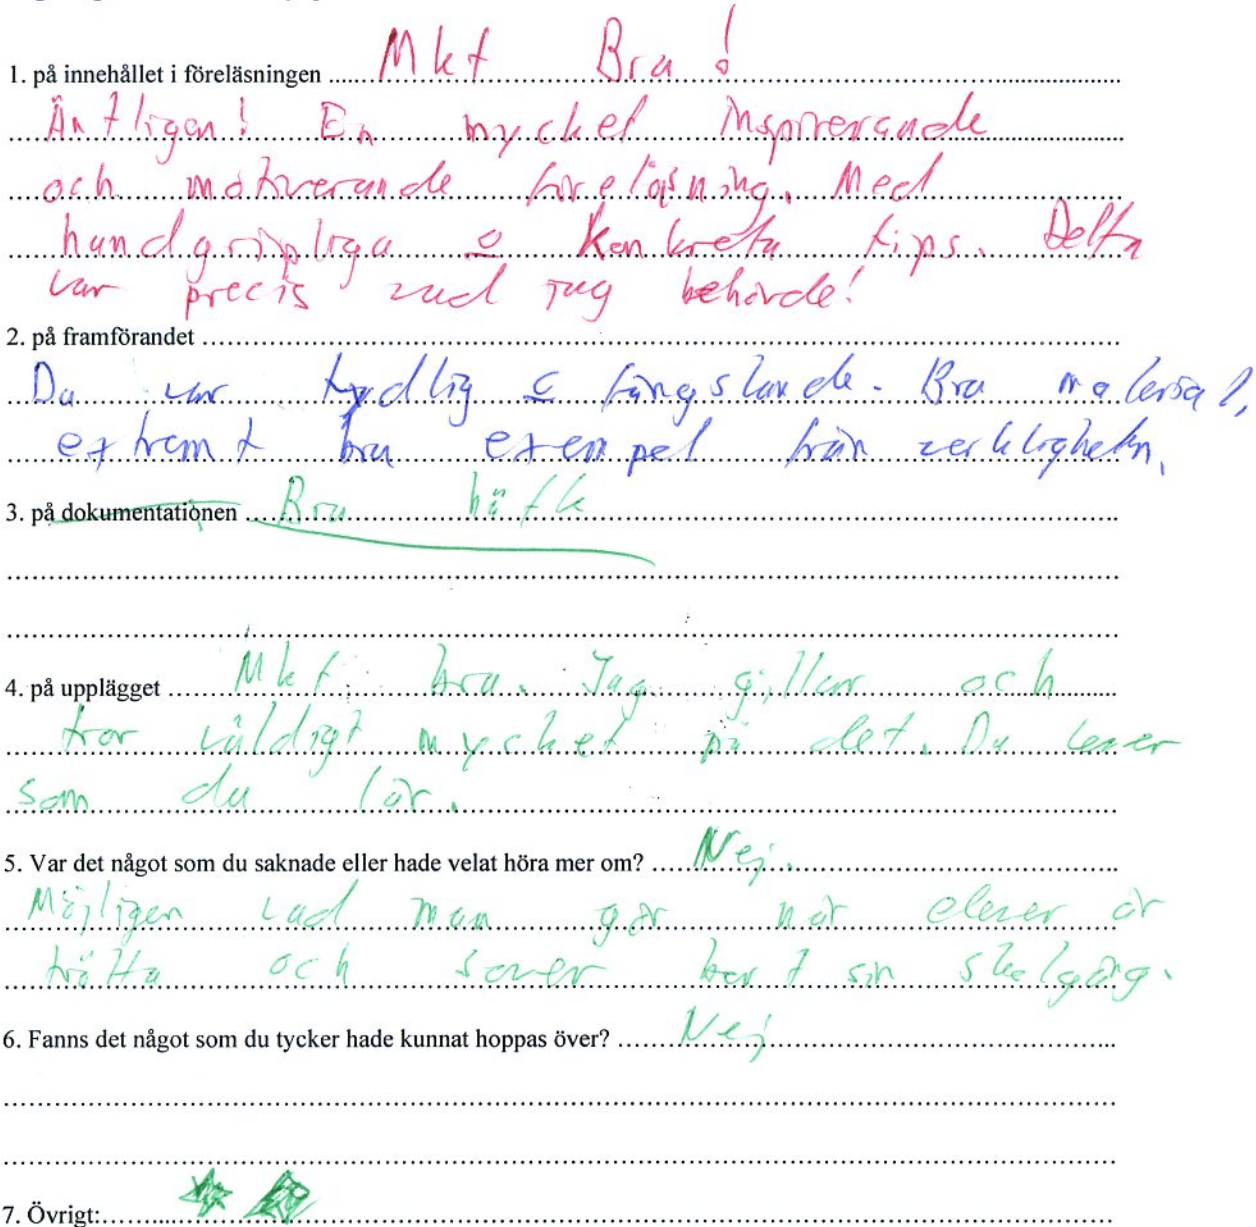 1. på innehållet i föreläsningen ...... Mkt Bra!
Äntligen! En mycket inspirerande
och motiverande föreläsning. Med
handgripliga o konkreta tips. Detta
var precis vad jag behövde!
2. på framförandet
Du var tydlig o fängslande. Bra material,
extremt bra exempel från verkligheten.
3. på dokumentationen ..... Bra häfte
4. på upplägget ....... Mkt bra. Jag gillar och
tror väldigt mycket på det. Du lever
som du lär.
5. Var det något som du saknade eller hade velat höra mer om? ..... Nej.
Möjligen vad man gör när elever är
trötta och sover bort sin skolgång.
6. Fanns det något som du tycker hade kunnat hoppas över? ....... Nej
7. Övrigt: